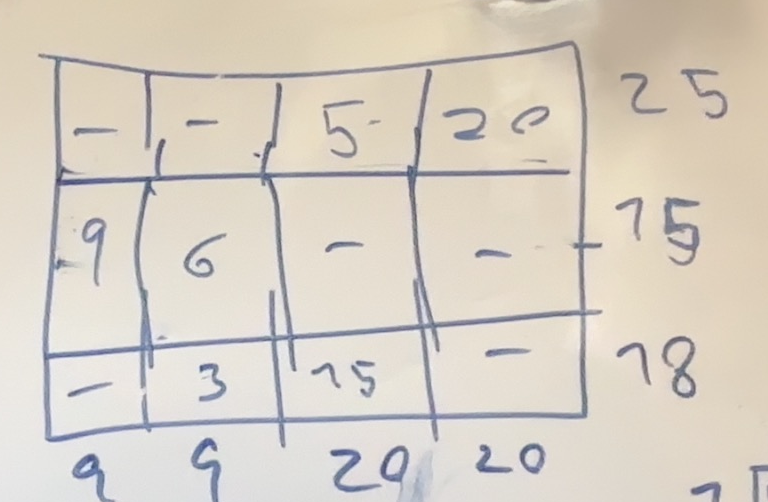 - - 5 20 25
9 6 - - 15
- 3 15 - 18
9 9 20 20